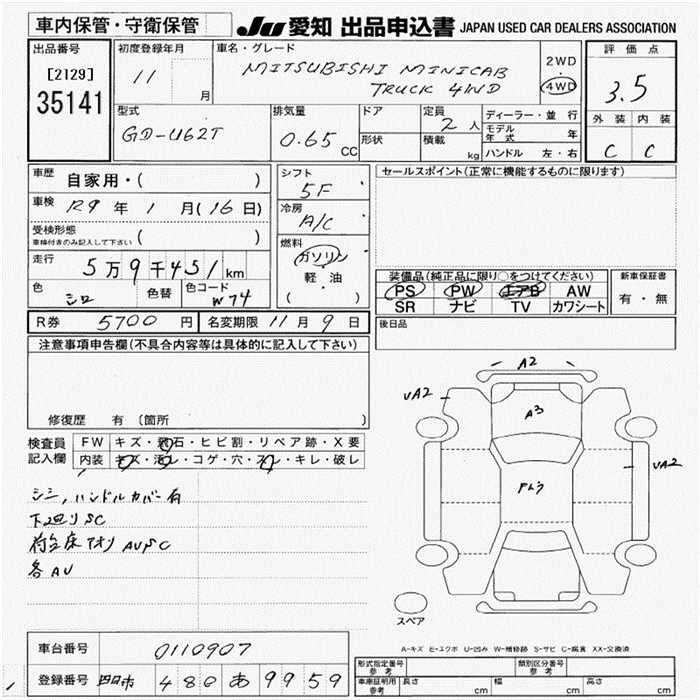 車内保管・守衛保管
JU 愛知 出品申込書 JAPAN USED CAR DEALERS ASSOCIATION
出品番号
[2129]
35141
初度登録年月
11 月
車名・グレード
MITSUBISHI MINICAB
TRUCK 4WD
2WD
・
4WD
評価点
3.5
外装 内装
C C
型式
GD-U62T
排気量
0.65 CC
ドア
形状
定員
2 人
積載
kg
ディーラー・並行
モデル年式 年
ハンドル 左・右
車歴
自家用・( )
車検 R9 年 1 月(16日)
受検形態
車検付きのみ記入して下さい ( )
走行
5万9千451km
色 シロ
色替
色コード W74
シフト
5F
冷房
A/C
燃料
ガソリン
軽・油
( )
セールスポイント(正常に機能するものに限ります)
装備品(純正品に限り○をつけてください)
PS PW エアB AW
SR ナビ TV カワシート
新車保証書
有・無
R券 5700 円 名変期限 11月 9日
後日品
注意事項申告欄(不具合内容等は具体的に記入して下さい)
修復歴 有(箇所 )
検査員
記入欄
FW キズ・飛石・ヒビ割・リペア跡・X要
内装 キズ・汚レ・コゲ・穴・スレ・キレ・破レ
シミ,ハンドルカバー有
下回りSC
荷台床アオリAUSC
各AU
A2
UA2
A3
UA2
スペア
A-キズ E-エクボ U-凹み W-補修跡 S-サビ C-腐食 XX-交換済
車台番号 0110907
登録番号 四日市 480 あ 9959
形式指定番号
参考
類別区分番号
参考
車庫証明用
参考
長さ cm 幅 cm 高さ cm